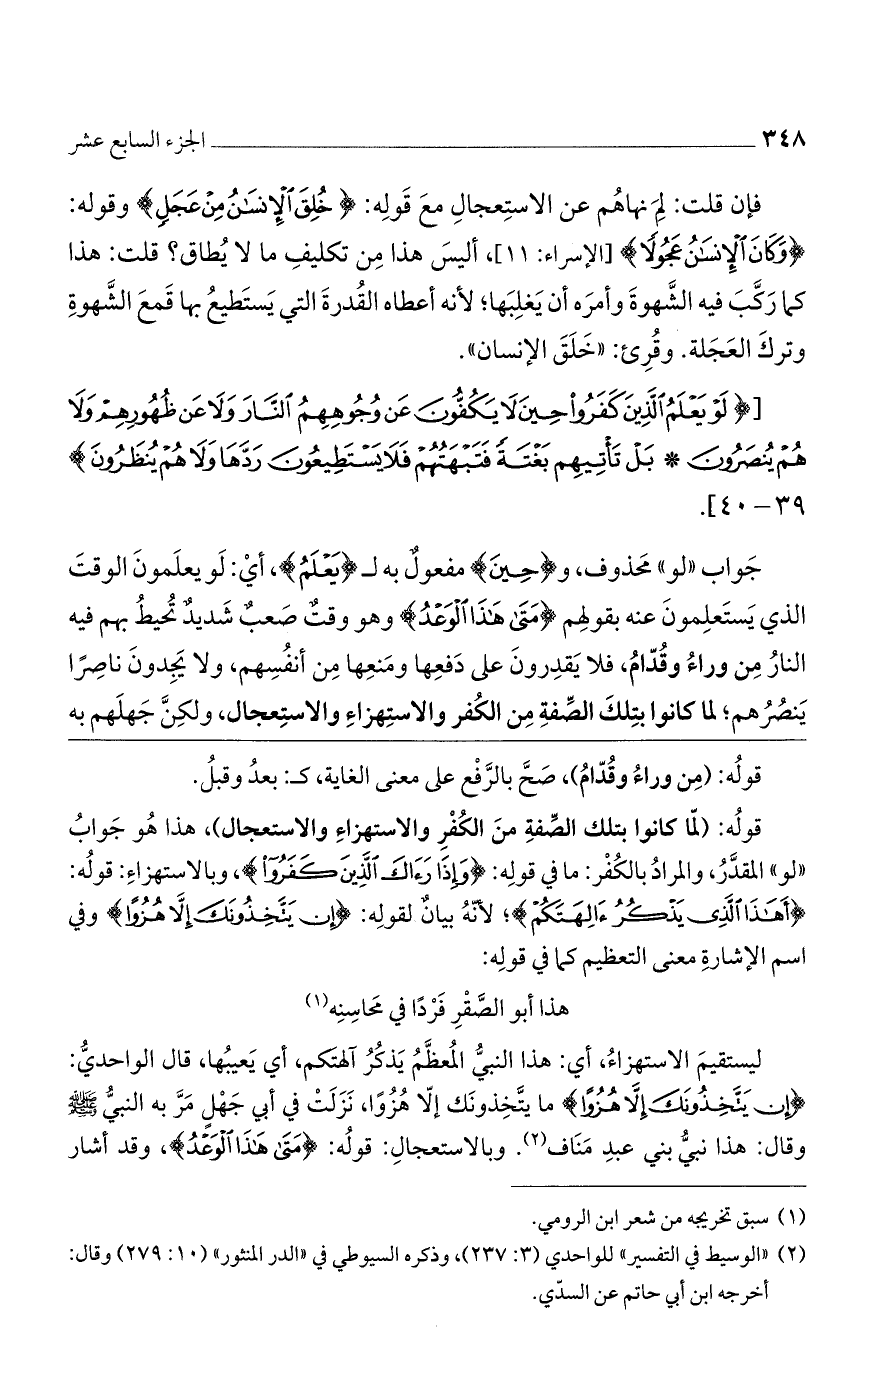 ٣٤٨ الجزء السابع عشر
فإن قلت: لِمَ نهاهُم عن الاستِعجالِ معَ قَولِه: ﴿خُلِقَ ٱلْإِنسَٰنُ مِنْ عَجَلٍ﴾ وقوله:
﴿وَكَانَ ٱلْإِنسَٰنُ عَجُولًا﴾ [الإسراء: ١١]، أليسَ هذا مِن تكليفِ ما لا يُطاق؟ قلت: هذا
كما رَكَّبَ فيه الشَّهوةَ وأمرَه أن يَغلِبَها؛ لأنه أعطاه القُدرةَ التي يَستَطيعُ بها قَمعَ الشَّهوةِ
وتركَ العَجَلة. وقُرِئ: «خَلَقَ الإنسان».
[﴿لَوْ يَعْلَمُ ٱلَّذِينَ كَفَرُوا۟ حِينَ لَا يَكُفُّونَ عَن وُجُوهِهِمُ ٱلنَّارَ وَلَا عَن ظُهُورِهِمْ وَلَا
هُمْ يُنصَرُونَ * بَلْ تَأْتِيهِم بَغْتَةً فَتَبْهَتُهُمْ فَلَا يَسْتَطِيعُونَ رَدَّهَا وَلَا هُمْ يُنظَرُونَ﴾
٣٩ – ٤٠].
جَواب «لو» مَحذوف، و﴿حِينَ﴾ مفعولٌ به لـ ﴿يَعْلَمُ﴾، أيْ: لَو يعلَمونَ الوقتَ
الذي يَستَعلِمونَ عنه بقولهِم ﴿مَتَىٰ هَٰذَا ٱلْوَعْدُ﴾ وهو وقتٌ صَعبٌ شَديدٌ تُحيطُ بهم فيه
النارُ مِن وراءُ وقُدّامُ، فلا يَقدِرونَ على دَفعِها ومَنعِها مِن أنفُسِهم، ولا يَجِدونَ ناصِرًا
يَنصُرُهم؛ لما كانوا بتِلكَ الصِّفةِ مِن الكُفر والاستِهزاءِ والاستِعجال، ولكِنَّ جَهلَهم به
قولُه: (مِن وراءُ وقُدّامُ)، صَحَّ بالرَّفْع على معنى الغاية، كـ: بعدُ وقبلُ.
قولُه: (لمّا كانوا بتلك الصِّفةِ منَ الكُفْرِ والاستهزاءِ والاستعجال)، هذا هُو جَوابُ
«لو» المقدَّرُ، والمرادُ بالكُفْر: ما في قولِه: ﴿وَإِذَا رَءَاكَ ٱلَّذِينَ كَفَرُوٓا۟﴾، وبالاستهزاءِ: قولُه:
﴿أَهَٰذَا ٱلَّذِى يَذْكُرُ ءَالِهَتَكُمْ﴾؛ لأنّهُ بيانٌ لقولِه: ﴿إِن يَتَّخِذُونَكَ إِلَّا هُزُوًا﴾ وفي
اسم الإشارةِ معنى التعظيم كما في قولِه:
هذا أبو الصَّقْرِ فَرْدًا في مَحَاسِنِه(١)
ليستقيمَ الاستهزاءُ، أي: هذا النبيُّ المُعظَّمُ يَذكُرُ آلهتَكم، أي يَعيبُها، قال الواحديُّ:
﴿إِن يَتَّخِذُونَكَ إِلَّا هُزُوًا﴾ ما يتَّخِذونَك إلّا هُزُوًا، نَزَلَتْ في أبي جَهْلٍ مَرَّ به النبيُّ ﷺ
وقال: هذا نبيُّ بني عبدِ مَنَاف(٢). وبالاستعجالِ: قولُه: ﴿مَتَىٰ هَٰذَا ٱلْوَعْدُ﴾، وقد أشار
(١) سبق تخريجه من شعر ابن الرومي.
(٢) «الوسيط في التفسير» للواحدي (٣: ٢٣٧)، وذكره السيوطي في «الدر المنثور» (١٠: ٢٧٩) وقال:
أخرجه ابن أبي حاتم عن السدّي.